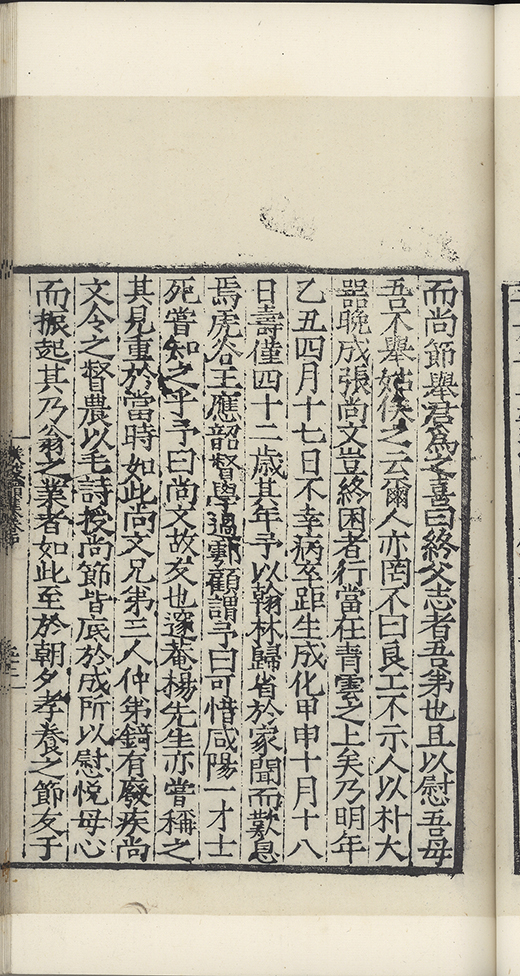 而尚節舉君爲之喜曰終父志者吾弟也且以慰吾母
吾不舉姑俟之云爾人亦罔不曰良工不示人以朴大
器晚成張尚文豈終困者行當在青雲之上矣乃明年
乙丑四月十七日不幸病卒距生成化甲申十月十八
日壽僅四十二歲其年予以翰林歸省於家聞而歎息
焉虎谷王應韶督學過鄠顧謂予曰可惜咸陽一才士
死嘗知之乎予曰尚文故友也邃菴楊先生亦嘗稱之
其見重於當時如此尚文兄弟三人仲弟錡有廢疾尚
文令之督農以毛詩授尚節皆底於成所以慰悅母心
而振起其乃翁之業者如此至於朝夕孝養之節友于